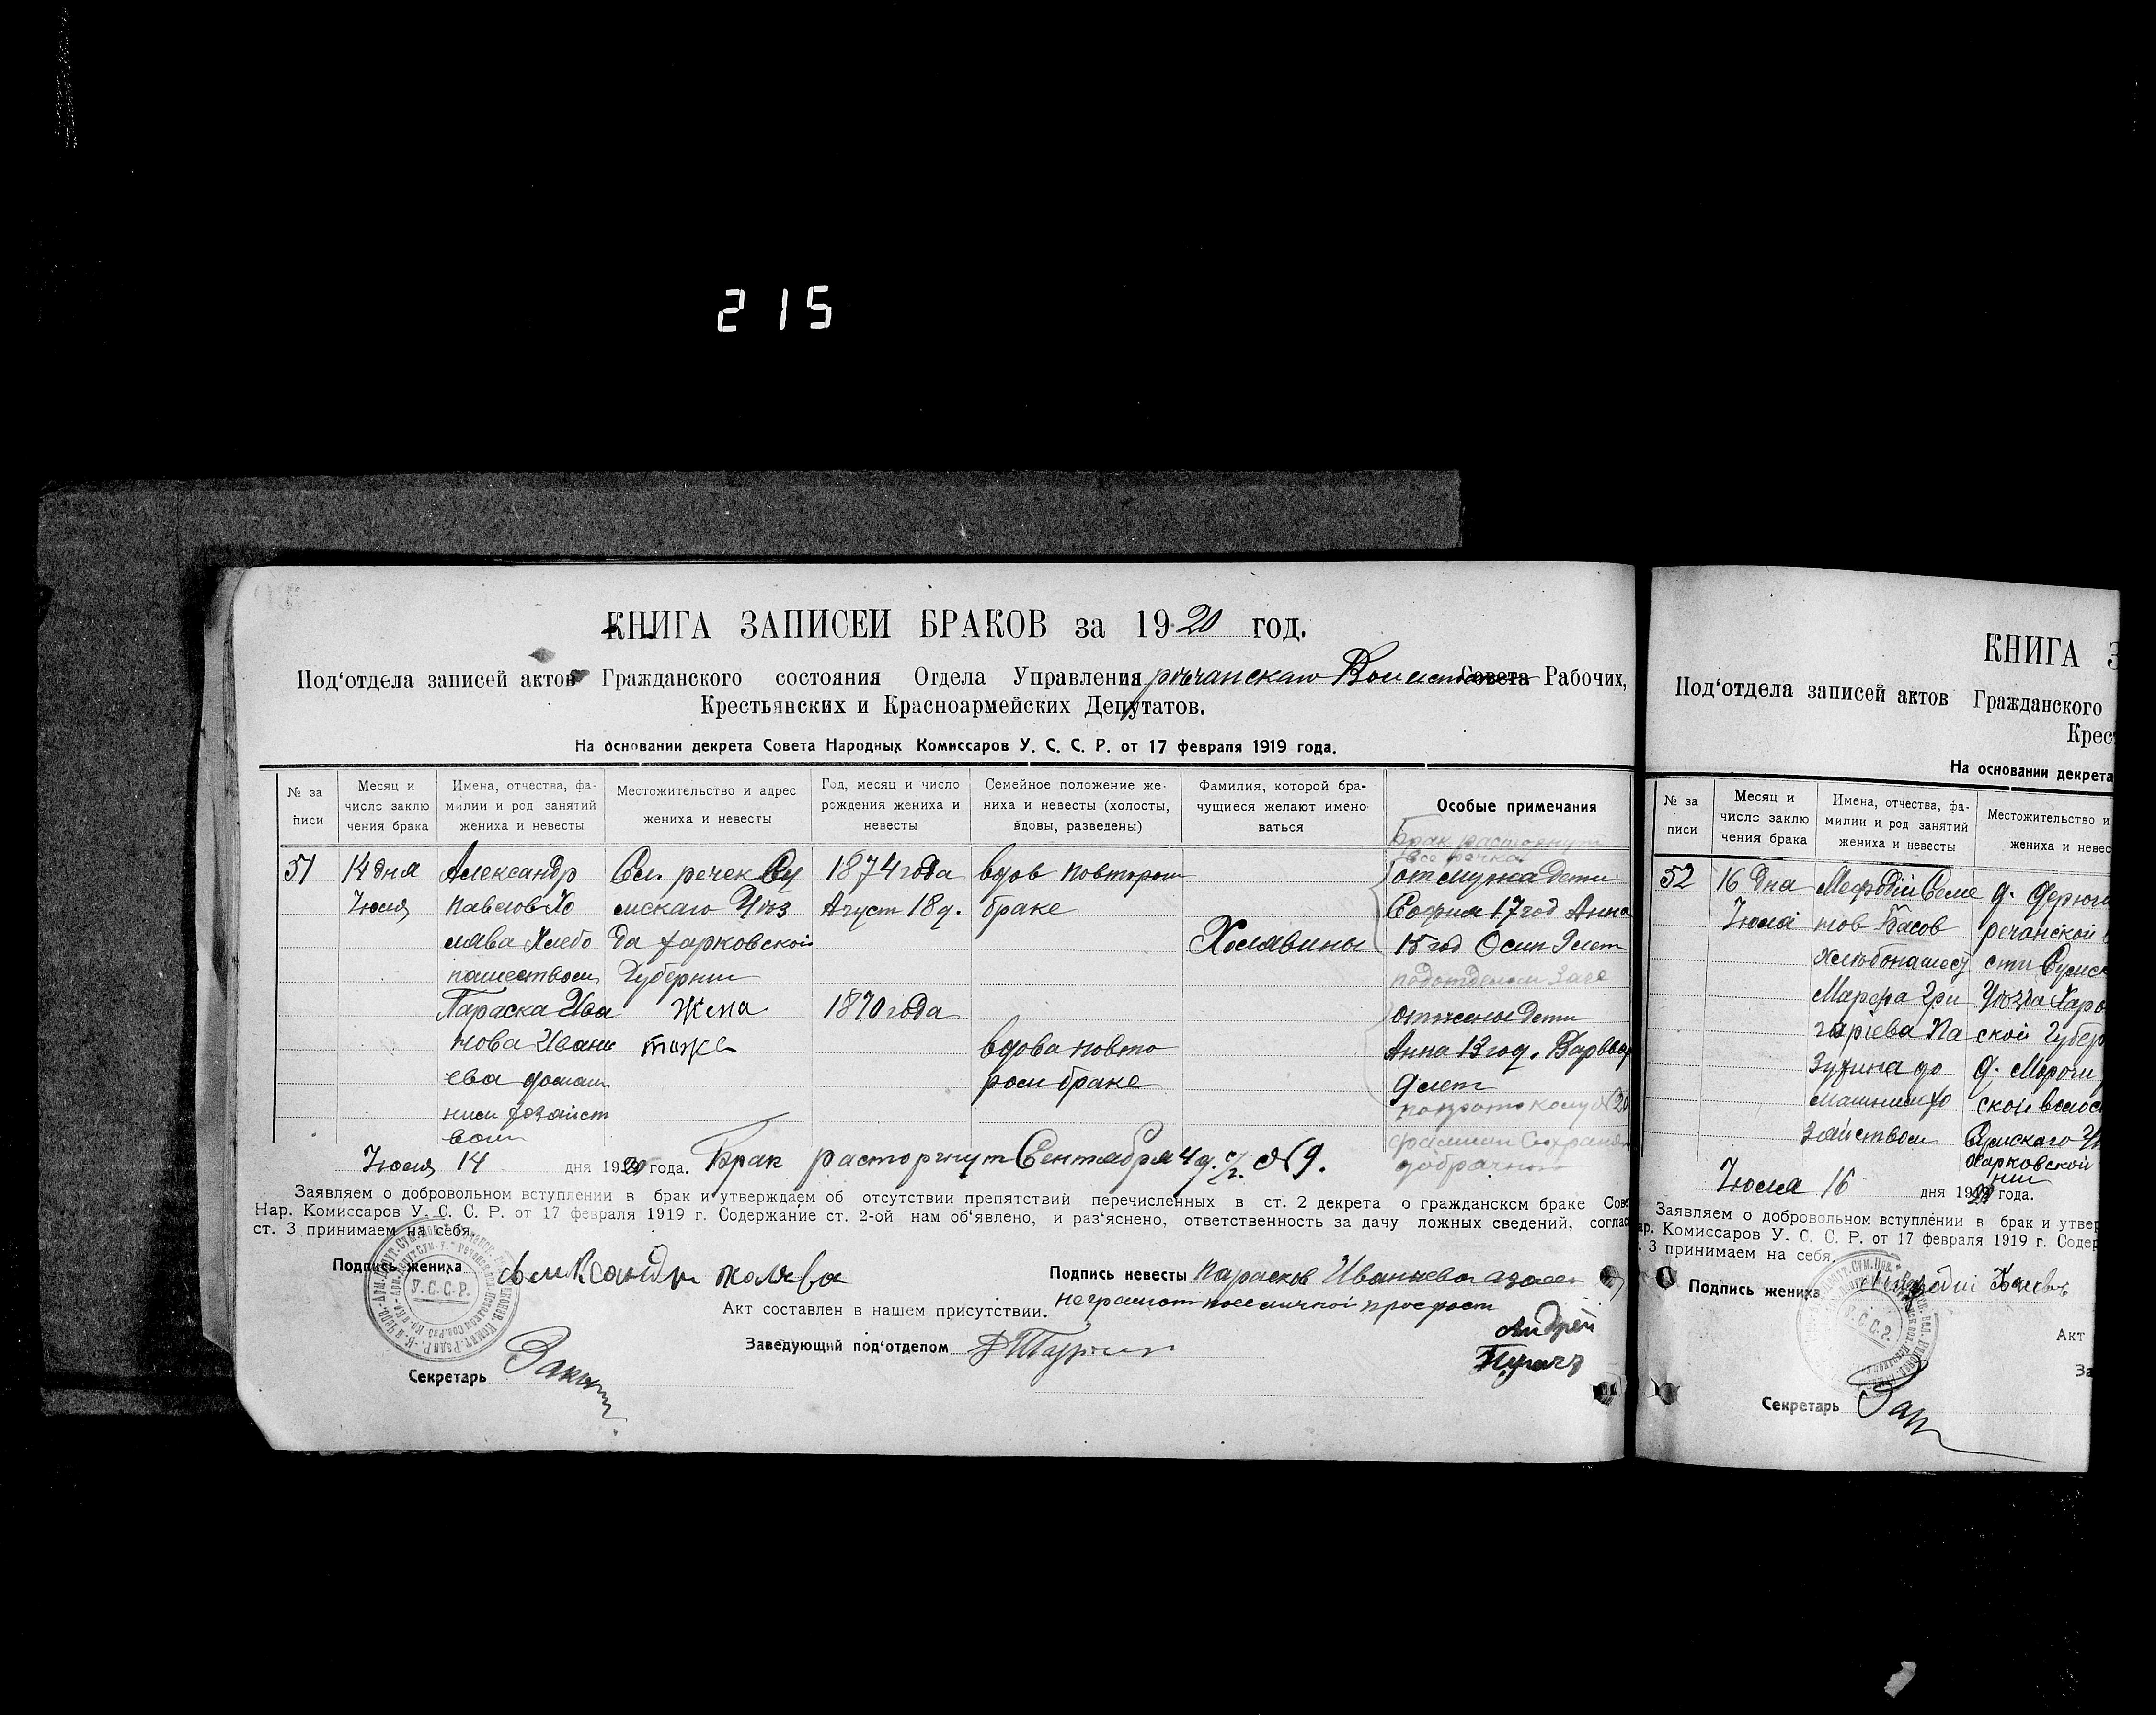 215
КНИГА ЗАПИСЕИ БРАКОВ за 1920 год.
Под'отдела записей актов Гражданского состояния Отдела Управления речанскаю Совета Рабочих,
Крестьянских и Красноармейских Депутатов.
На основании декрета Совета Народных Комиссаров У. С. С. Р. от 17 февраля 1919 года.
№ за писи
Месяц и число заклю чения брака
Имена, отчества, фа- милии и род занятий жениха и невесты
Местожительство и адрес жениха и невесты
Год, месяц и число рождения жениха и невесты
Семейное положение же- ниха и невесты (холосты, вдовы, разведены)
Фамилия, которой бра- чущиеся желают имено ваться
Особые примечания
Брак расторгнут
51
14 дня
Июля
Александр
павлов Хо
лява Хлебо
пашеством
Параска Ива
нова Ивани
ева домаш
ним хозайст
вом
Сл. речек Су
мскаго Уез
да харковской
Губернии
Жена
тоже
1874 года
Август 18 д.
1870 года
вдов повтором
браке
вдова повто
ром браке
Холявины
от мужа дети
София 17 год Анна
15 год Осип 9 лет
подотделом Загс
от жены дети
Анна 13 год. Варвар
9 лет
фамилии
добрачн
Июля 14 дня 1920 года. Брак расторгнут Сентября 4 д. с/г. №9.
Заявляем о добровольном вступлении в брак и утверждаем об отсутствии препятствий перечисленных в ст. 2 декрета о гражданском браке Сове
Нар. Комиссаров У. С. С. Р. от 17 февраля 1919 г. Содержание ст. 2-ой нам об'явлено, и раз'яснено, ответственность за дачу ложных сведений, соглас
ст. 3 принимаем на себя.
Подпись жениха Александр холява
Подпись невесты параскв Иваниева азаее
неграмот поеличной прозрост
Акт составлен в нашем присутствии.
Андрей
Пугач
Заведующий под'отделом
Секретарь
У.С.С.Р.
КНИГА З
Под'отдела записей актов Гражданского
Крест
На основании декрета
№ за писи
Месяц и число заклю чения брака
Имена, отчества, фа- милии и род занятий жениха и невесты
Местожительство и жениха и невес
52
16 дня
Июля
Мефодій Семе
нов Басов
хлебопашест
Марфа Гри
горіева Па
зухина до
машним хо
зайством
д. Дерюги
речанской
сти Сумск
Уезда Харь
ской Губер
ской волос
Сумскаго У
Харковской
нии
Июля 16 дня 19 года.
Заявляем о добровольном вступлении в брак и утвер
ар. Комиссаров У. С. С. Р. от 17 февраля 1919 г. Содер
. 3 принимаем на себя.
Подпись жениха
Акт
За
Секретарь